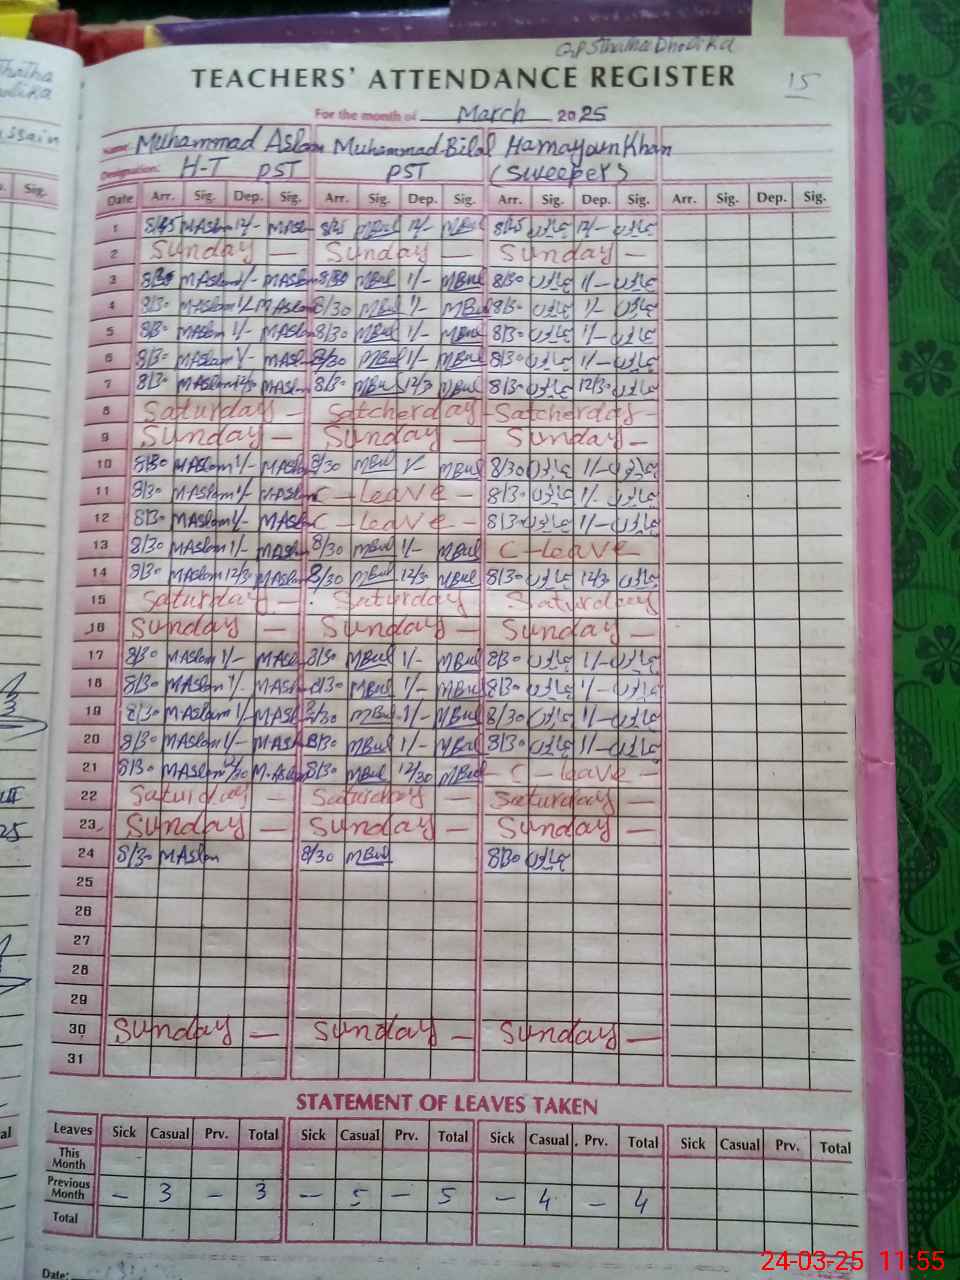 GPS Thatha Dholika
TEACHERS' ATTENDANCE REGISTER 15
For the month of March 2025
Name: Muhammad Aslam Muhammad Bilal Hamayoun Khan
Designation: H-T PST PST (Sweeper)
Date Arr. Sig. Dep. Sig. Arr. Sig. Dep. Sig. Arr. Sig. Dep. Sig. Arr. Sig. Dep. Sig.
1 8/45 MAslam 12/- MAslam 8/45 MBul 12/- MBul 8/45 12/-
2 Sunday — Sunday — Sunday —
3 8/30 MAslam 1/- MAslam 8/30 MBul 1/- MBul 8/30 1/-
4 8/30 MAslam 1/- MAslam 8/30 MBul 1/- MBul 8/30 1/-
5 8/30 MAslam 1/- MAslam 8/30 MBul 1/- MBul 8/30 1/-
6 8/30 MAslam 1/- MAslam 8/30 MBul 1/- MBul 8/30 1/-
7 8/30 MAslam 12/30 MAslam 8/30 MBul 12/30 MBul 8/30 12/30
8 Saturday — Satcherday — Satcherday —
9 Sunday — Sunday — Sunday —
10 8/30 MAslam 1/- MAslam 8/30 MBul 1/- MBul 8/30 1/-
11 8/30 MAslam 1/- MAslam C - Leave - 8/30 1/-
12 8/30 MAslam 1/- MAslam C - Leave - 8/30 1/-
13 8/30 MAslam 1/- MAslam 8/30 MBul 1/- MBul C - Leave
14 8/30 MAslam 12/30 MAslam 8/30 MBul 12/30 MBul 8/30 12/30
15 Saturday — Saturday Saturday
16 Sunday — Sunday — Sunday —
17 8/30 MAslam 1/- MAslam 8/30 MBul 1/- MBul 8/30 1/-
18 8/30 MAslam 1/- MAslam 8/30 MBul 1/- MBul 8/30 1/-
19 8/30 MAslam 1/- MAslam 8/30 MBul 1/- MBul 8/30 1/-
20 8/30 MAslam 1/- MAslam 8/30 MBul 1/- MBul 8/30 1/-
21 8/30 MAslam 12/30 M.Aslam 8/30 MBul 12/30 MBul - C - Leave -
22 Saturday — Saturday — Saturday —
23 Sunday — Sunday — Sunday —
24 8/30 MAslam 8/30 MBul 8/30
25
26
27
28
29
30 Sunday — Sunday — Sunday —
31
STATEMENT OF LEAVES TAKEN
Leaves Sick Casual Prv. Total Sick Casual Prv. Total Sick Casual Prv. Total Sick Casual Prv. Total
This Month
Previous Month - 3 - 3 - 5 - 5 - 4 - 4
Total
Date:
24-03-25 11:55